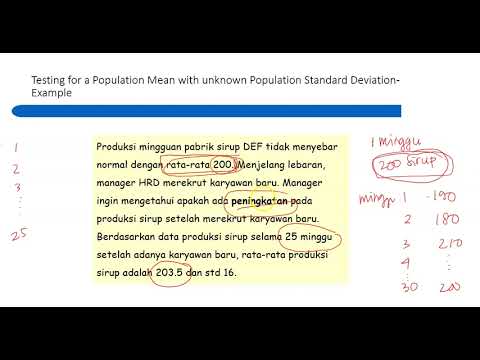 Testing for a Population Mean with unknown Population Standard Deviation-
Example
Produksi mingguan pabrik sirup DEF tidak menyebar
normal dengan rata-rata 200. Menjelang lebaran,
manager HRD merekrut karyawan baru. Manager
ingin mengetahui apakah ada peningkatan pada
produksi sirup setelah merekrut karyawan baru.
Berdasarkan data produksi sirup selama 25 minggu
setelah adanya karyawan baru, rata-rata produksi
sirup adalah 203.5 dan std 16.
1
2
3
25
1 minggu
200 sirup
minggu 1 190
2 180
3 210
4
30 200